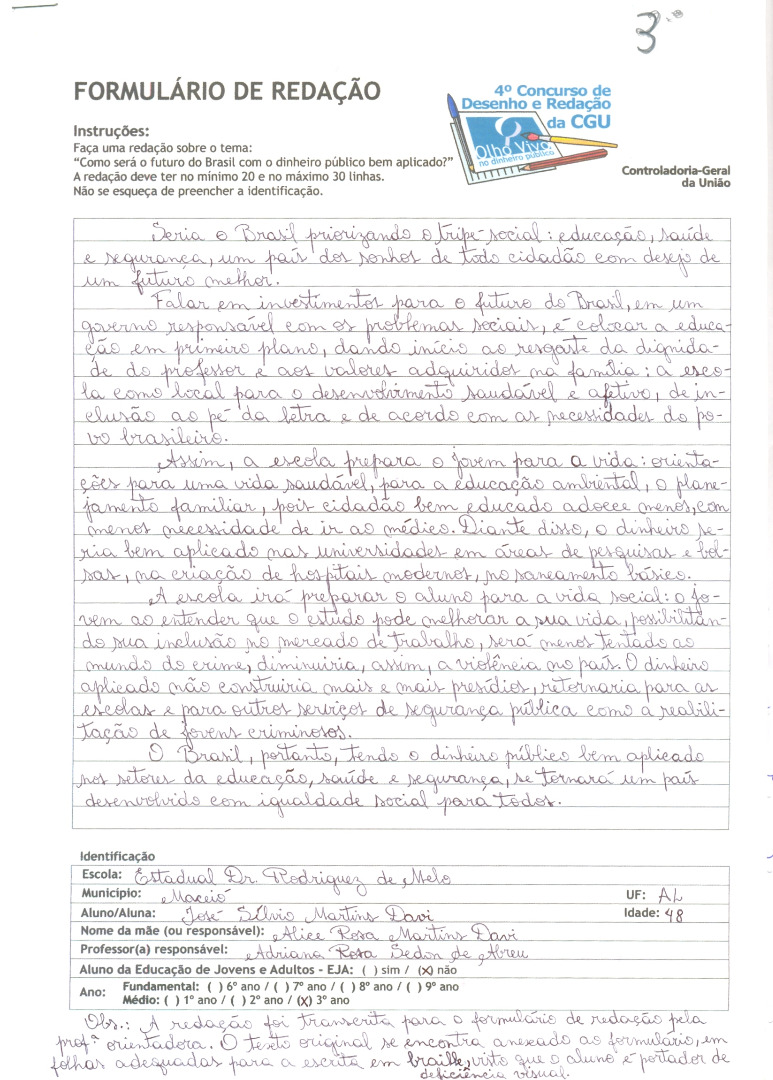 3º
FORMULÁRIO DE REDAÇÃO
4º Concurso de
Desenho e Redação
da CGU
Olho Vivo
no dinheiro público
Controladoria-Geral
da União
Instruções:
Faça uma redação sobre o tema:
“Como será o futuro do Brasil com o dinheiro público bem aplicado?”
A redação deve ter no mínimo 20 e no máximo 30 linhas.
Não se esqueça de preencher a identificação.
Seria o Brasil priorizando o tripé social: educação, saúde
e segurança, um país dos sonhos de todo cidadão com desejo de
um futuro melhor.
Falar em investimentos para o futuro do Brasil, em um
governo responsável com os problemas sociais, é colocar a educa-
ção em primeiro plano, dando início ao resgaste da dignida-
de do professor e aos valores adquiridos na família; a esco-
la como local para o desenvolvimento saudável e afetivo, de in-
clusão ao pé da letra e de acordo com as necessidades do po-
vo brasileiro.
Assim, a escola prepara o jovem para a vida: orienta-
ções para uma vida saudável, para a educação ambiental, o plane-
jamento familiar, pois cidadão bem educado adoece menos, com
menos necessidade de ir ao médico. Diante disso, o dinheiro se-
ria bem aplicado nas universidades em áreas de pesquisas e bol-
sas, na criação de hospitais modernos, no saneamento básico.
A escola irá preparar o aluno para a vida social: o jo-
vem ao entender que o estudo pode melhorar a sua vida, possibilitan-
do sua inclusão no mercado de trabalho, será menos tentado ao
mundo do crime, diminuiria, assim, a violência no país. O dinheiro
aplicado não construiria mais e mais presídios, retornaria para as
escolas e para outros serviços de segurança pública como a reabili-
tação de jovens criminosos.
O Brasil, portanto, tendo o dinheiro público bem aplicado
nos setores da educação, saúde e segurança, se tornará um país
desenvolvido com igualdade social para todos.
Identificação
Escola: Estadual Dr. Rodriguez de Melo
Município: Maceió UF: AL
Aluno/Aluna: José Sílvio Martins Davi Idade: 48
Nome da mãe (ou responsável): Alice Rosa Martins Davi
Professor(a) responsável: Adriana Rosa Sedon de Abreu
Aluno da Educação de Jovens e Adultos - EJA: ( ) sim / (X) não
Ano: Fundamental: ( ) 6º ano / ( ) 7º ano / ( ) 8º ano / ( ) 9º ano
Médio: ( ) 1º ano / ( ) 2º ano / (X) 3º ano
Obs.: A redação foi transcrita para o formulário de redação pela
prof.ª orientadora. O texto original se encontra anexado ao formulário, em
folhas adequadas para a escrita em braille, visto que o aluno é portador de
deficiência visual.